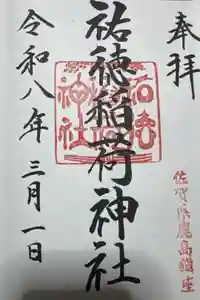 奉拝
佐賀県鹿島鎮座
祐徳稲荷神社
令和八年三月一日